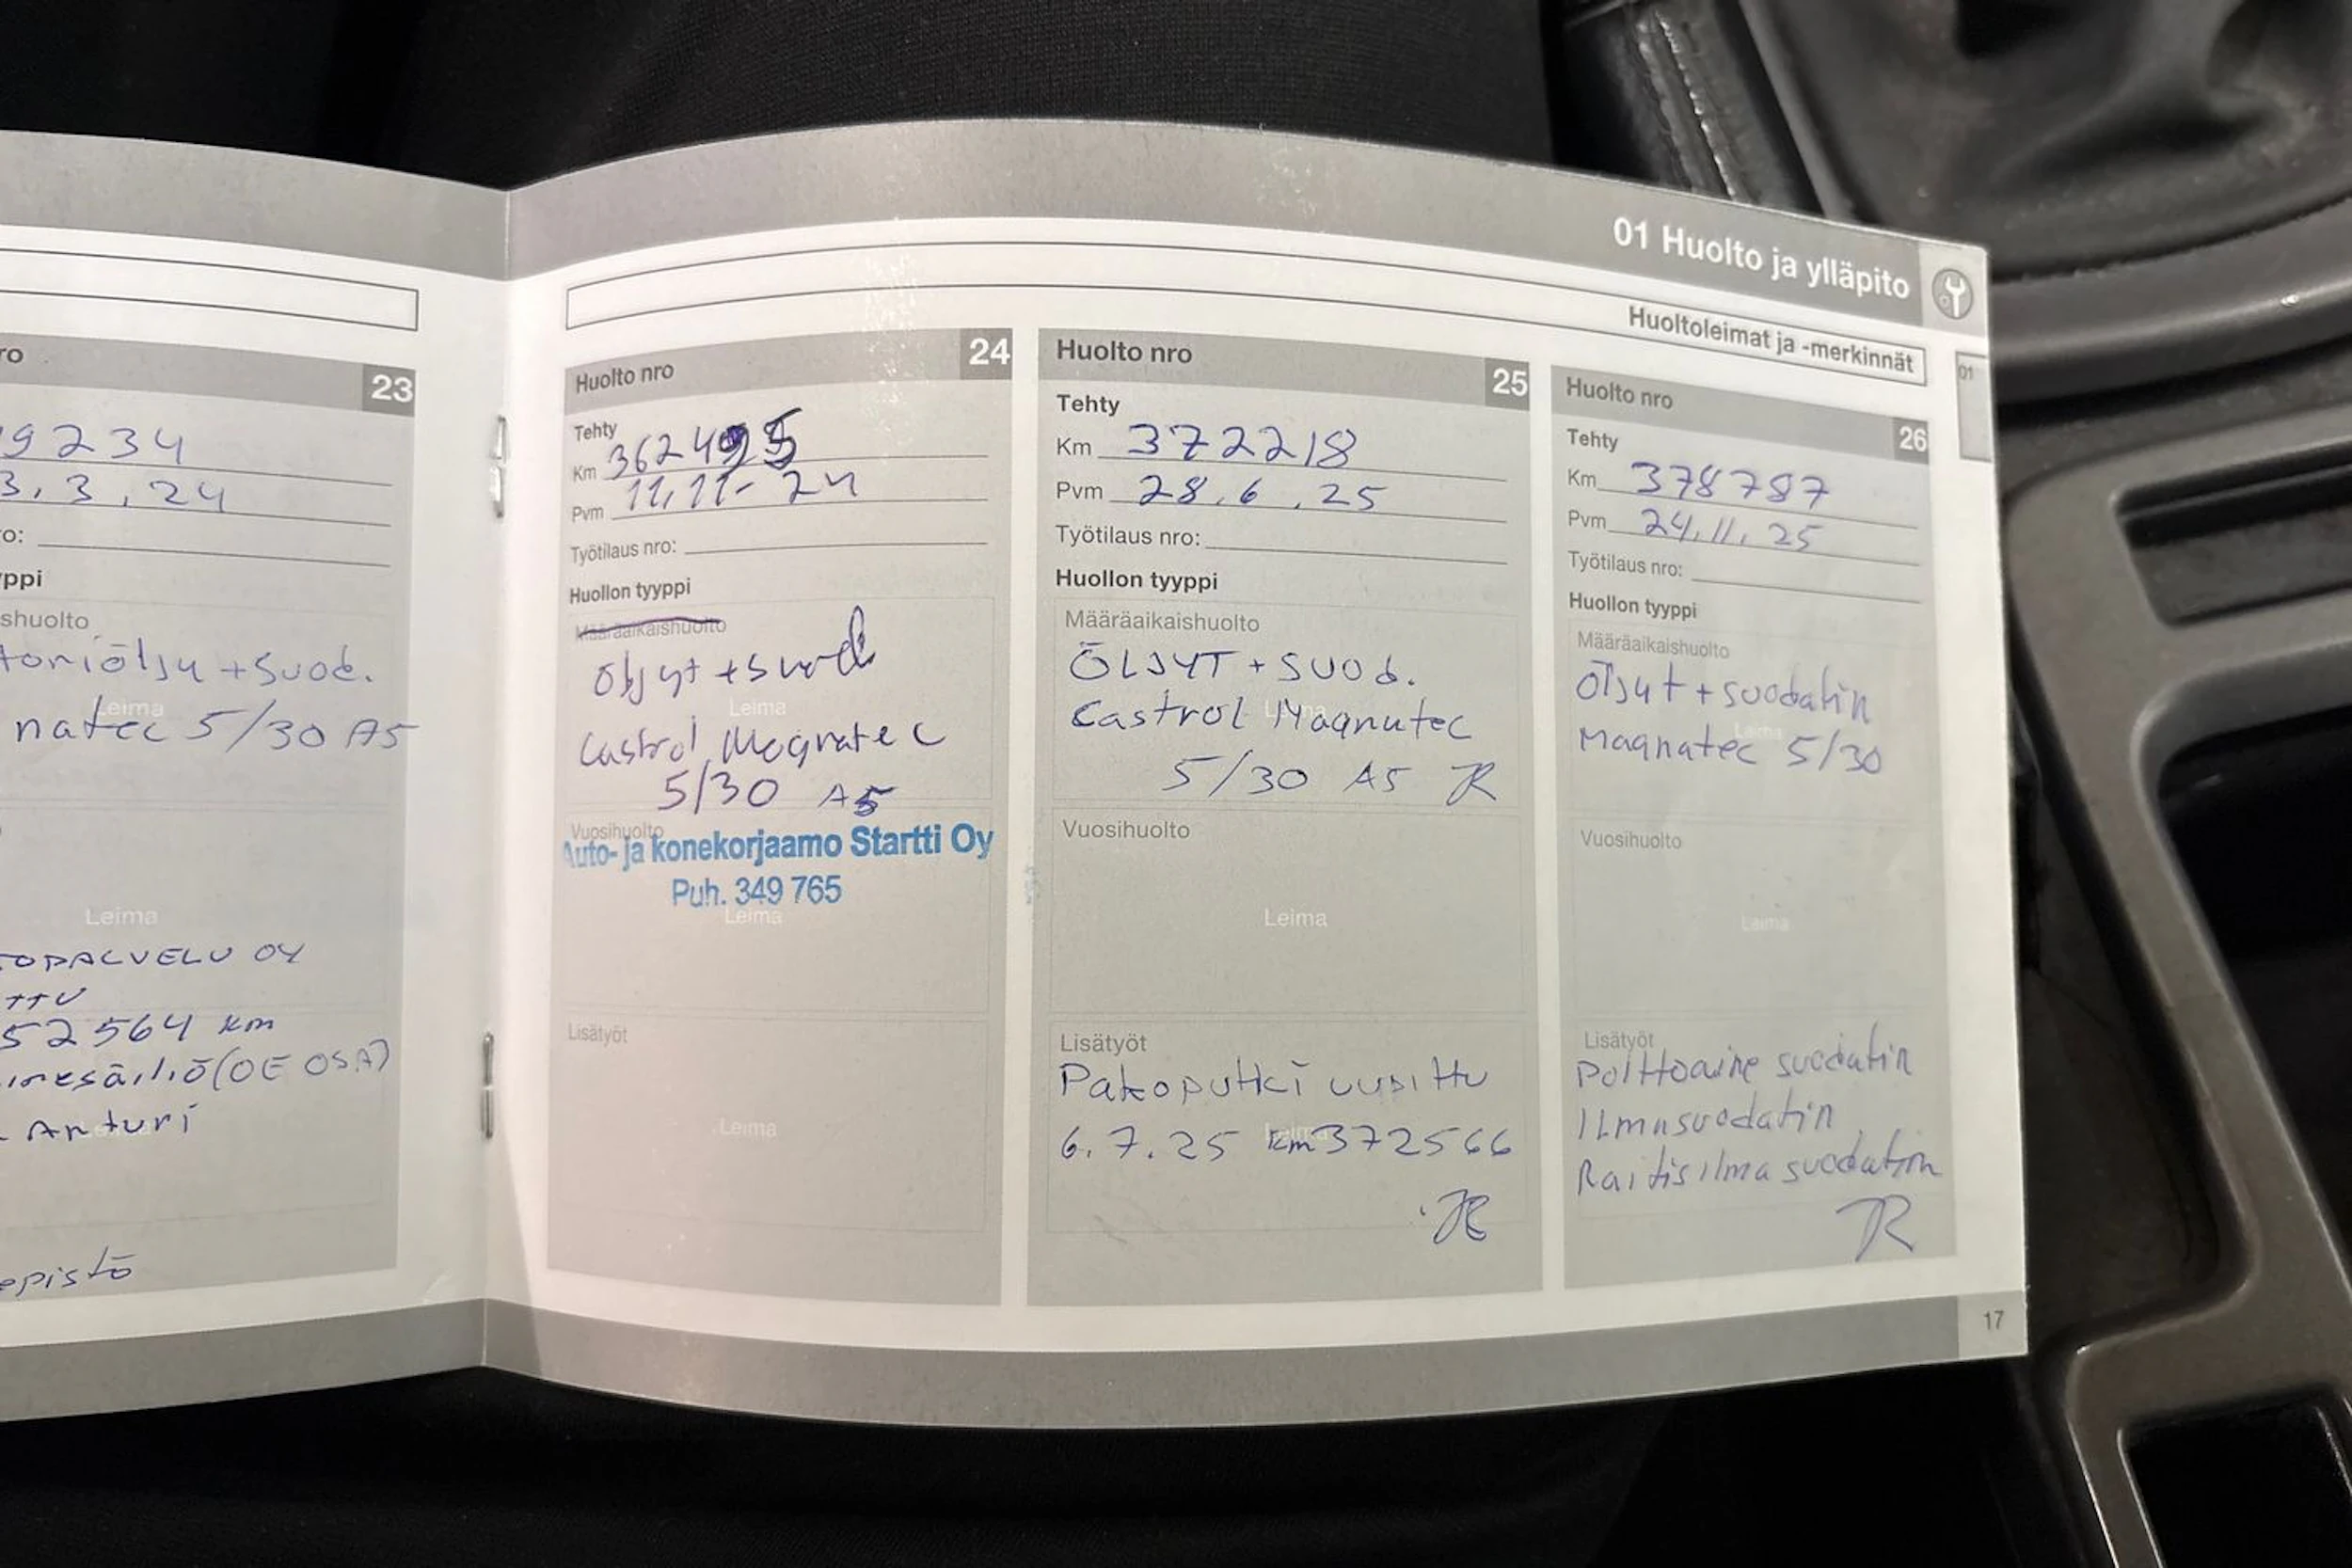 01 Huolto ja ylläpito
Huoltoleimat ja -merkinnät
01
ro
23
9234
3.3.24
o:
yppi
shuolto
toriöljy + suod.
Leima
natec 5/30 A5
Leima
TOPALVELU OY
TTU
52564 km
inesäiliö (OE OSA)
Anturi
episto
Huolto nro
24
Tehty
Km 362495
Pvm 11.11-24
Työtilaus nro:
Huollon tyyppi
Määräaikaishuolto
Öljyt + suod
Leima
Castrol Magnatec
5/30 A5
Vuosihuolto
Auto- ja konekorjaamo Startti Oy
Puh. 349 765
Leima
Lisätyöt
Leima
Huolto nro
25
Tehty
Km 372218
Pvm 28.6.25
Työtilaus nro:
Huollon tyyppi
Määräaikaishuolto
ÖLJYT + SUOD.
Castrol Magnatec
5/30 A5
Vuosihuolto
Leima
Lisätyöt
Pakoputki uusittu
6.7.25 km 372566
Leima
Huolto nro
26
Tehty
Km 378787
Pvm 24.11.25
Työtilaus nro:
Huollon tyyppi
Määräaikaishuolto
Öljyt + suodatin
Leima
Magnatec 5/30
Vuosihuolto
Leima
Lisätyöt
Polttoaine suodatin
Ilmasuodatin
Raitisilma suodatin
17